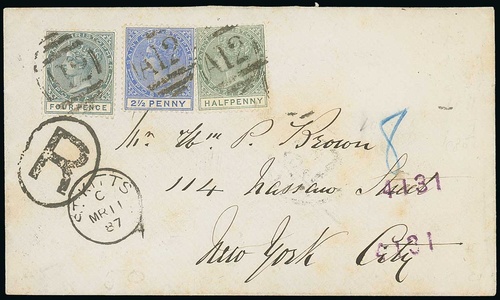 A12 A12 A12
FOUR PENCE 2½ PENNY HALFPENNY
R
Mr. Wm. P. Brown
8
114 Nassau Street
4131
ST. KITTS
C
MR 11
87
New York City
4131